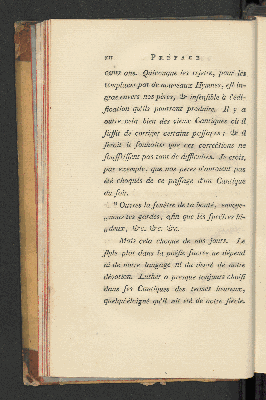 XII PRÉFACE.
cents ans. Quiconque les rejette, pour les
remplacer par de nouveaux Hymnes, est in-
grat envers nos pères, & insensible à l'édi-
fication qu'ils pourront produire. Il y a
outre cela bien des vieux Cantiques où il
suffit de corriger certains passages; & il
seroit à souhaiter que ces corrections ne
souffrissent pas tant de difficultés. Je crois,
par exemple, que nos pères n'auroient pas
été choqués de ce passage d'un Cantique
du soir.
" Ouvres la fenêtre de ta bonté, envoye-
nous tes gardes, afin que les spectres hi-
deux, &c. &c. &c.
Mais cela choque de nos jours. Le
stile plat dans la poésie sacrée ne dépend
ni de notre langage ni du degré de notre
dévotion. Luther a presque toujours choisi
dans ses Cantiques des termes heureux,
quelqu'éloigné qu'il ait été de notre siècle.